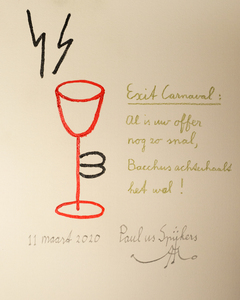 Exit Carnaval :
Al is uw offer
nog zo smal,
Bacchus achterhaalt
het wel !
11 maart 2020 Paul us Spijkers